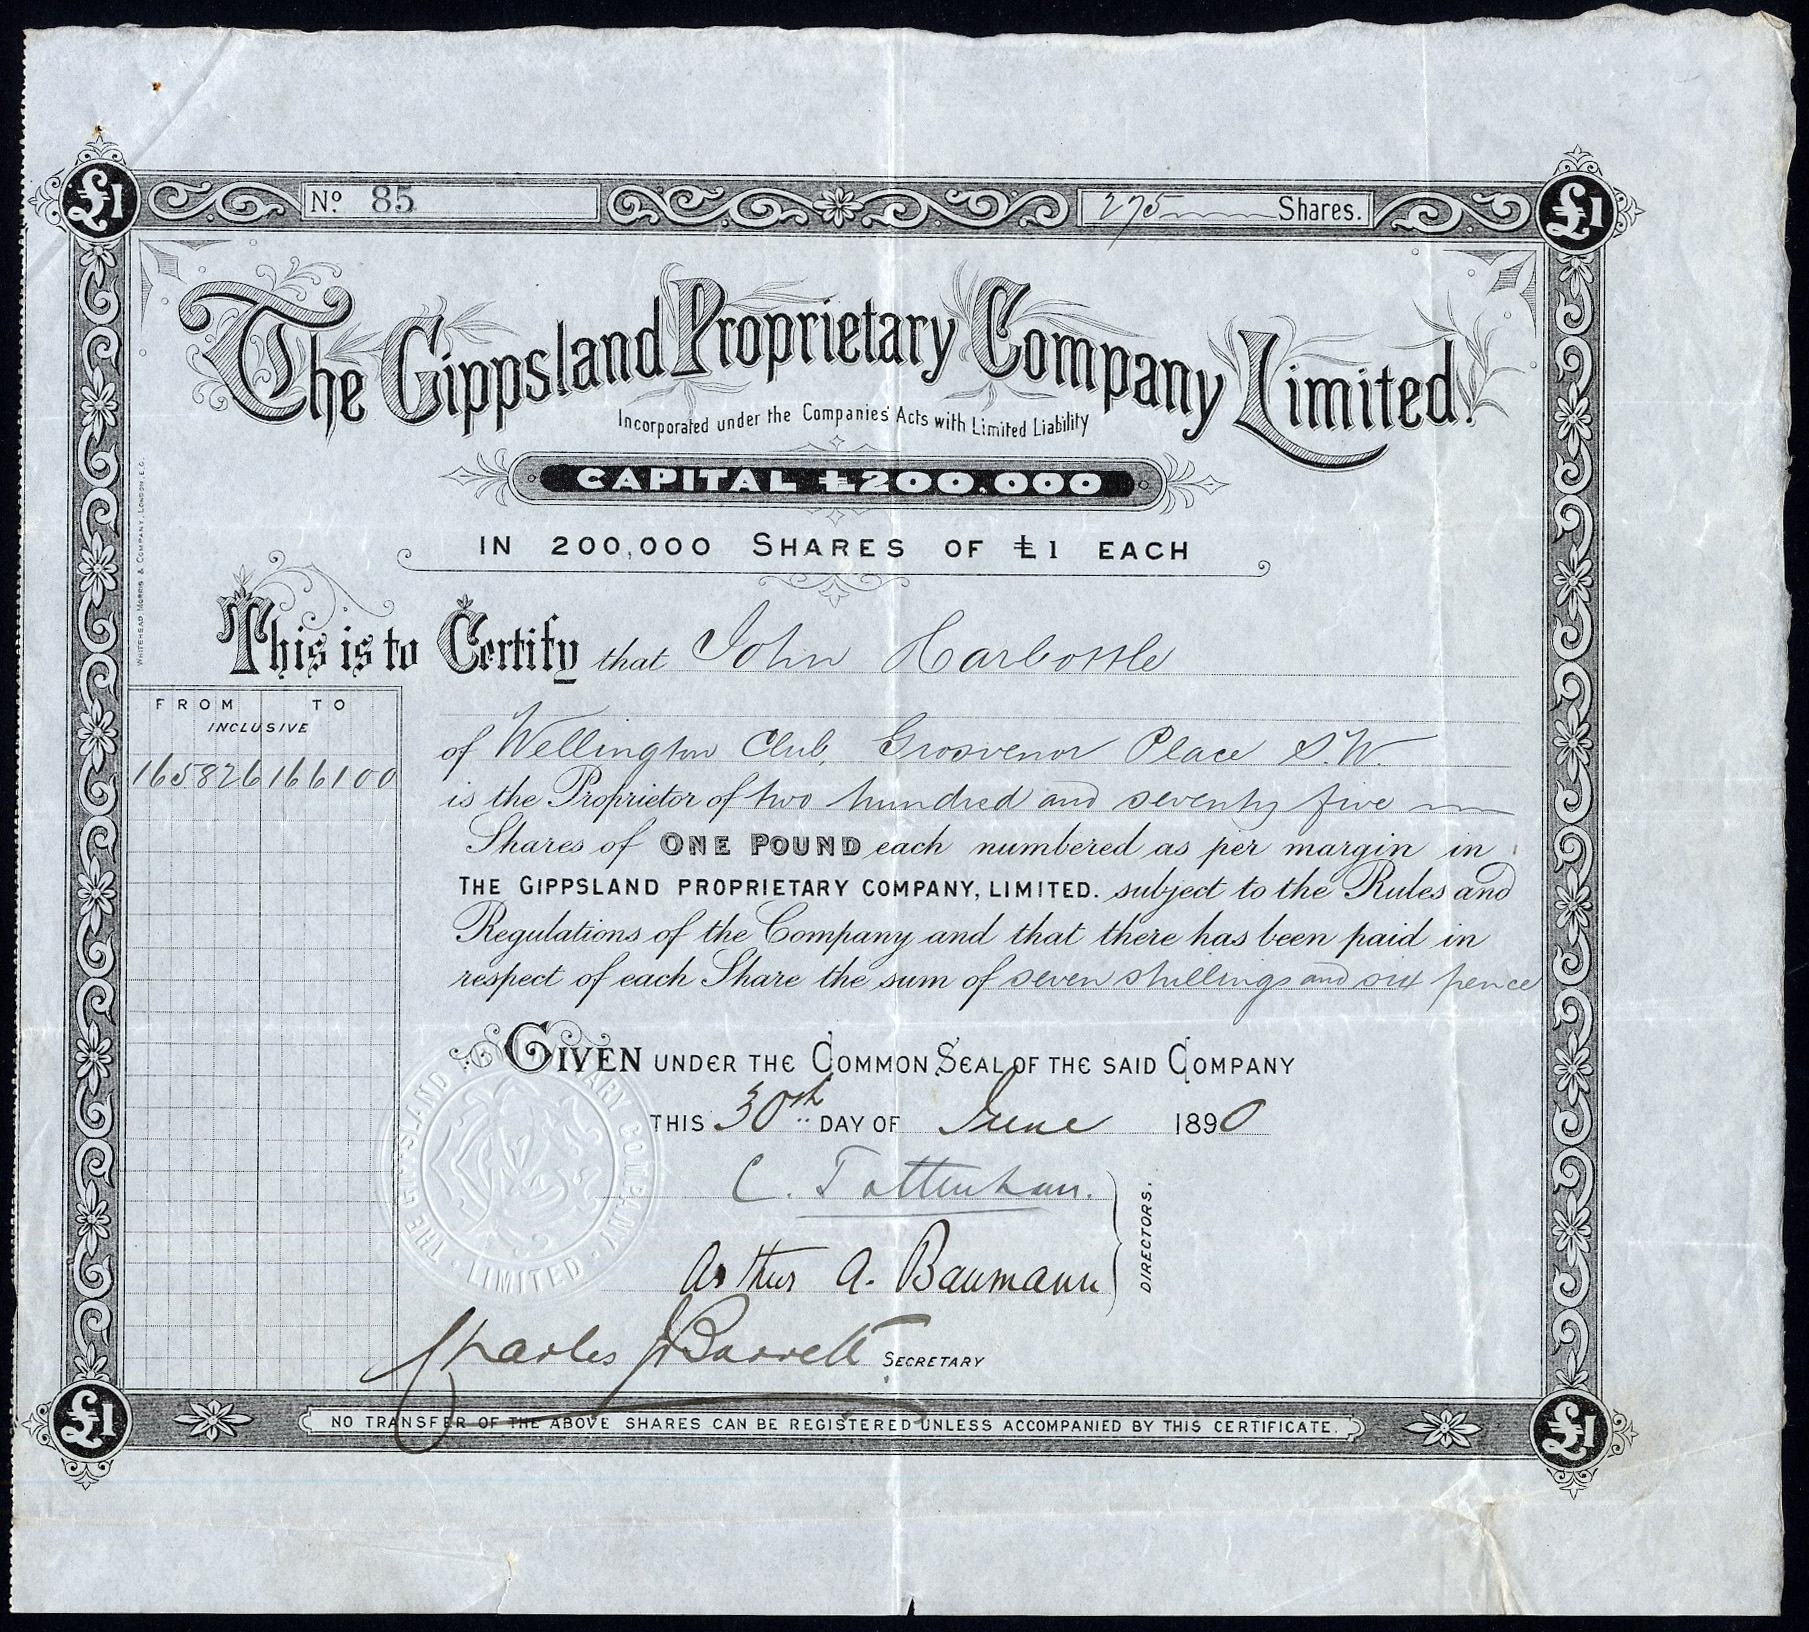 £1 Nº 85 275 Shares. £1
The Gippsland Proprietary Company Limited.
Incorporated under the Companies' Acts with Limited Liability
CAPITAL £200.000
IN 200,000 SHARES OF £1 EACH
This is to Certify that John Harbottle
FROM TO
INCLUSIVE
165826 166100
of Wellington Club, Grosvenor Place S.W.
is the Proprietor of two hundred and seventy five
Shares of ONE POUND each numbered as per margin in
THE GIPPSLAND PROPRIETARY COMPANY, LIMITED. subject to the Rules and
Regulations of the Company and that there has been paid in
respect of each Share the sum of seven shillings and six pence
GIVEN UNDER THE COMMON SEAL OF THE SAID COMPANY
THIS 30th DAY OF June 1890
C. Tottenham.
Arthur A. Baumann
DIRECTORS.
Charles J Barrett SECRETARY
THE GIPPSLAND PROPRIETARY COMPANY LIMITED
£1 NO TRANSFER OF THE ABOVE SHARES CAN BE REGISTERED UNLESS ACCOMPANIED BY THIS CERTIFICATE. £1
WHITEHEAD MORRIS & COMPANY, LONDON, E.C.